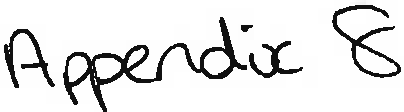 Appendix 8